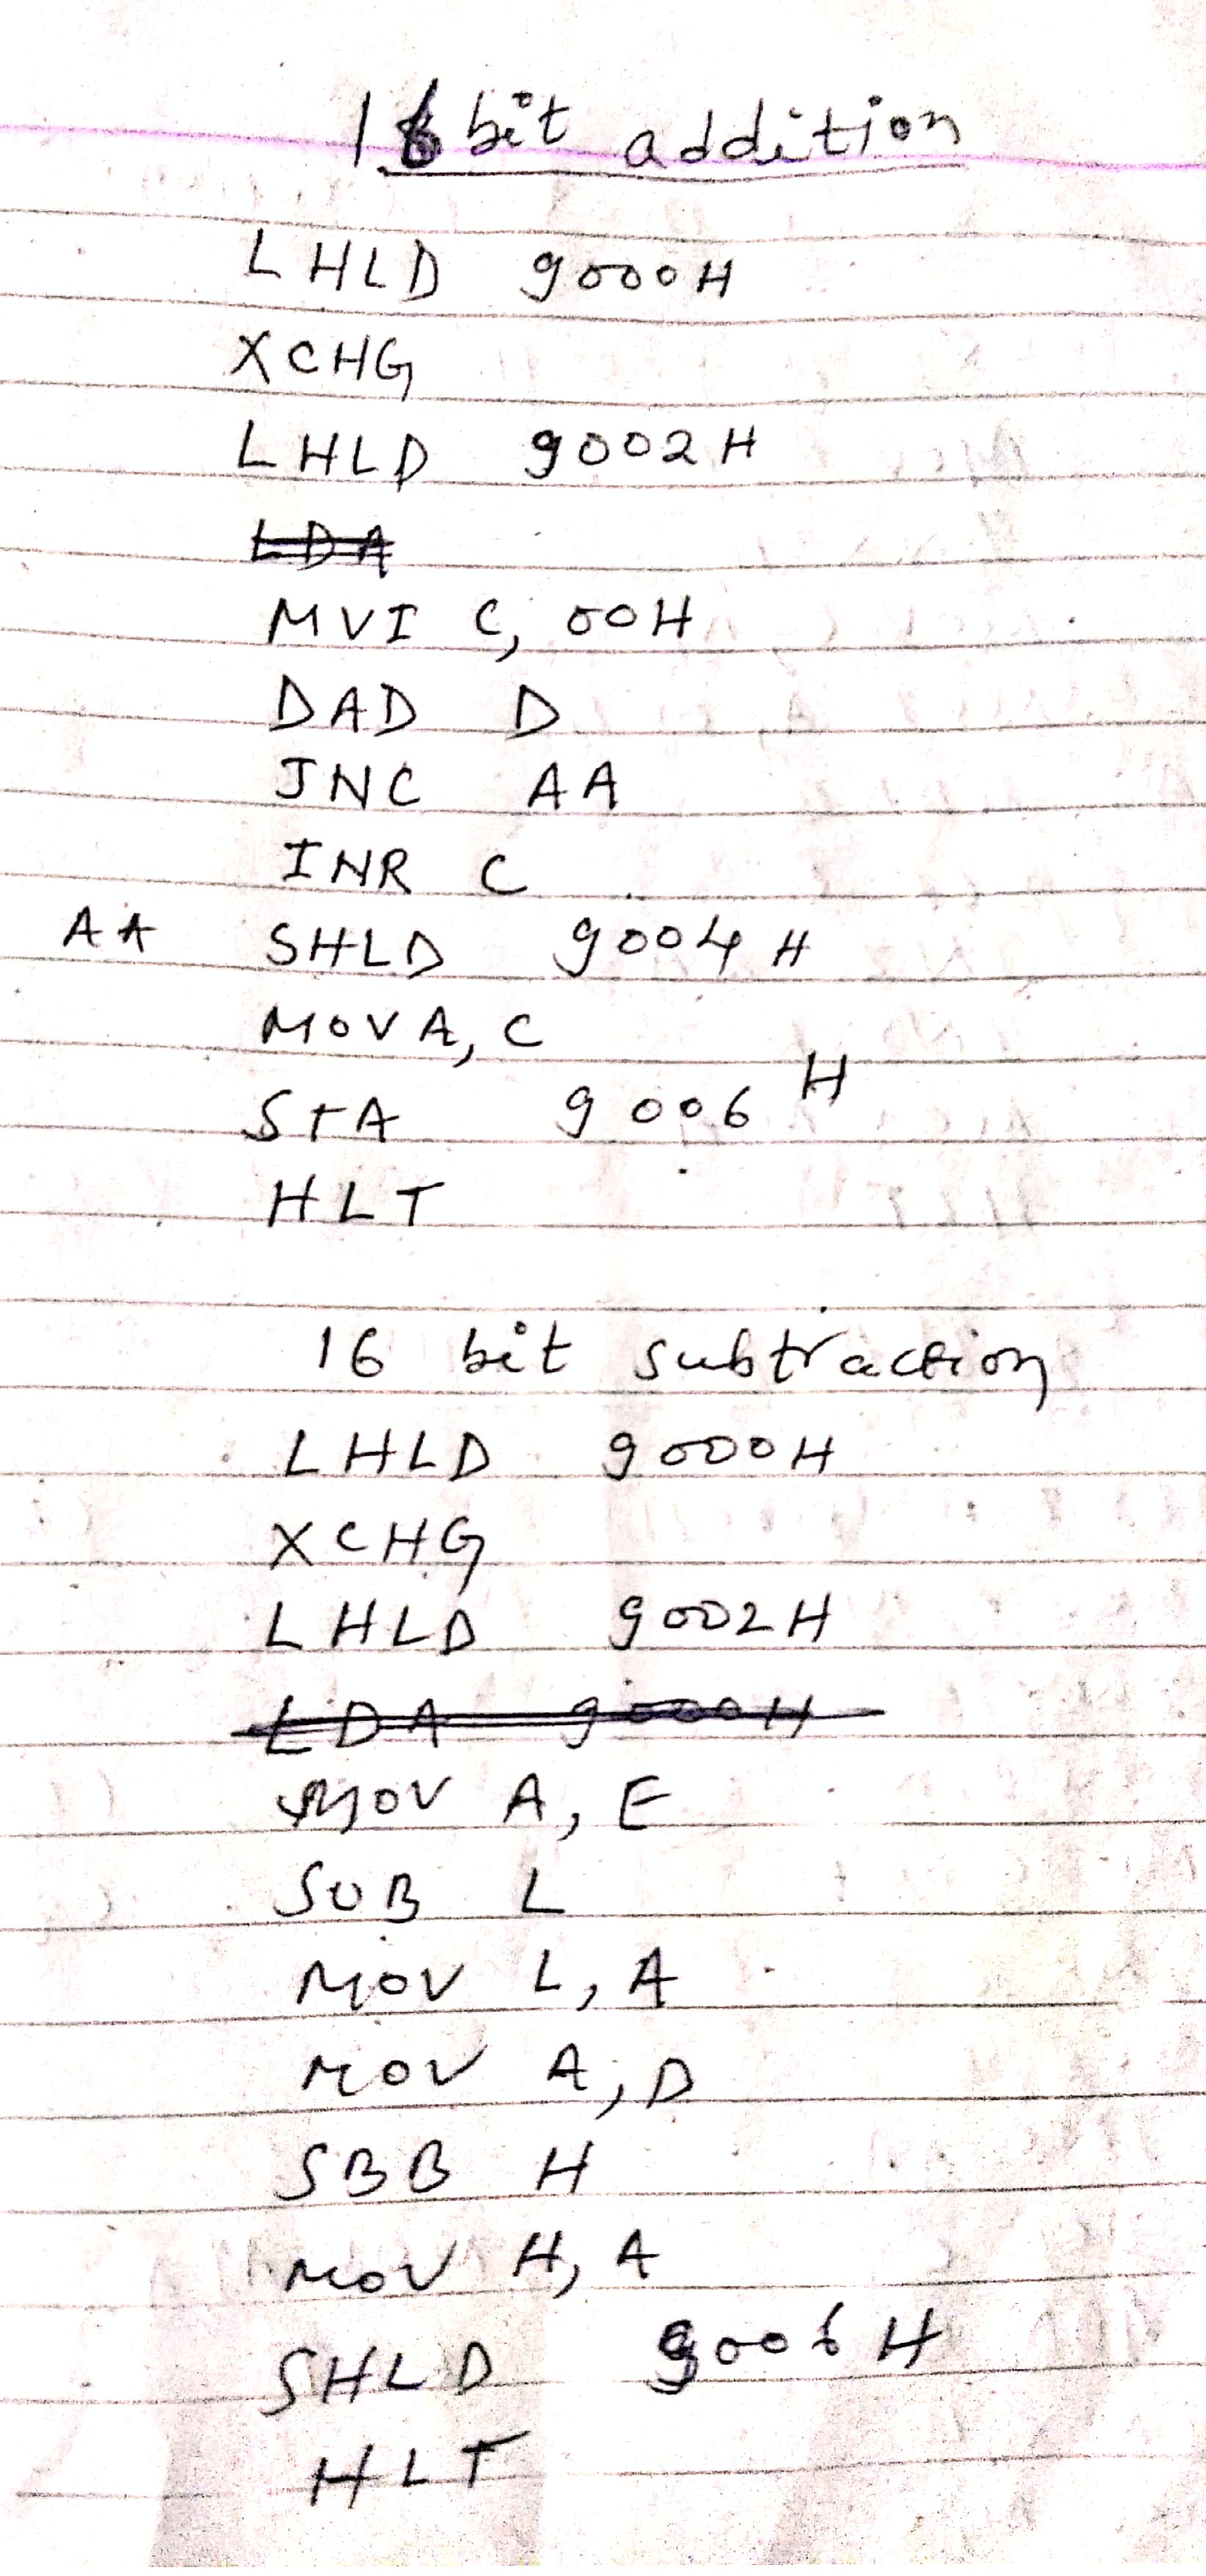 16 bit addition
LHLD 9000H
XCHG
LHLD 9002H
LDA
MVI C, 00H
DAD D
JNC AA
INR C
AA SHLD 9004H
MOV A, C
STA 9006H
HLT
16 bit subtraction
LHLD 9000H
XCHG
LHLD 9002H
LDA 9000H
MOV A, E
SUB L
MOV L, A
MOV A, D
SBB H
MOV H, A
SHLD 9006H
HLT